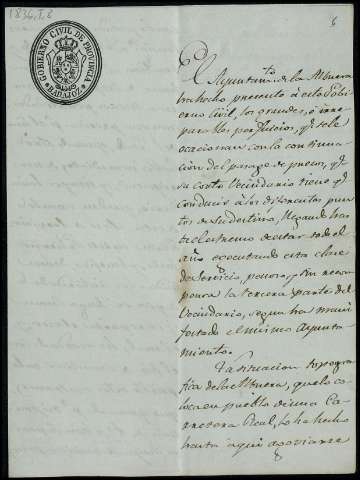 1836, T. 8
6
GOBIERNO CIVIL DE PROVINCIA
BADAJOZ
El Ayuntam.to de la Albuera
ha hecho presente à este Gobi-
erno Civil, los grandes, é irre-
parables perjuicios, q.e se le
ocacionan con la continua-
cion del pasage de presos, q.e
su corto Vecindario tiene q.e
conducir à los diferentes pun-
tos de su destino, llegando has-
ta el estremo de estar todo el
año ocupados en esta clase
de Servicio, penoso, y sin recom-
pensa la tercera parte del
Vecindario, segun ha mani-
festado el mismo Ayunta-
miento.
La situacion topogra-
fica de la Albuera, que lo co-
loca en pueblo de una Ca-
rretera Real, lo ha hecho
hasta aqui